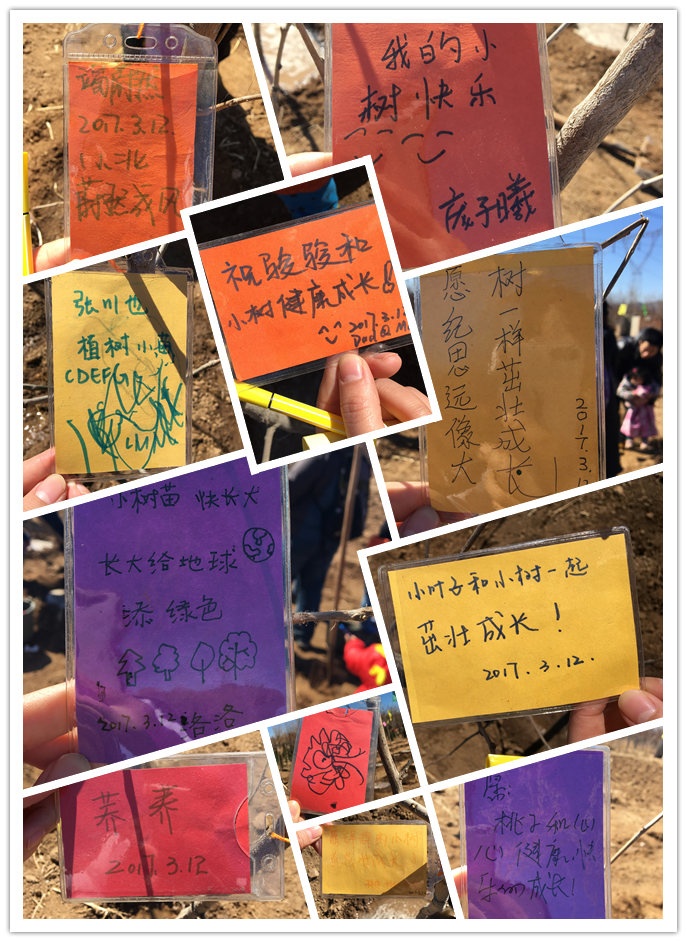 2017.3.12.
小北
我的小
树快乐
祝骏骏和
小树健康成长
2017.3.12
Dad & M
张川也
植树小
CDEFG
LM
愿纪思远像大
树一样茁壮成长
2017.3.12
小树苗 快长大
长大给地球
添绿色
2017.3.12 洛洛
小叶子和小树一起
茁壮成长!
2017.3.12.
荞荞
2017.3.12
愿:
桃子和心
心健康、快
乐的成长!